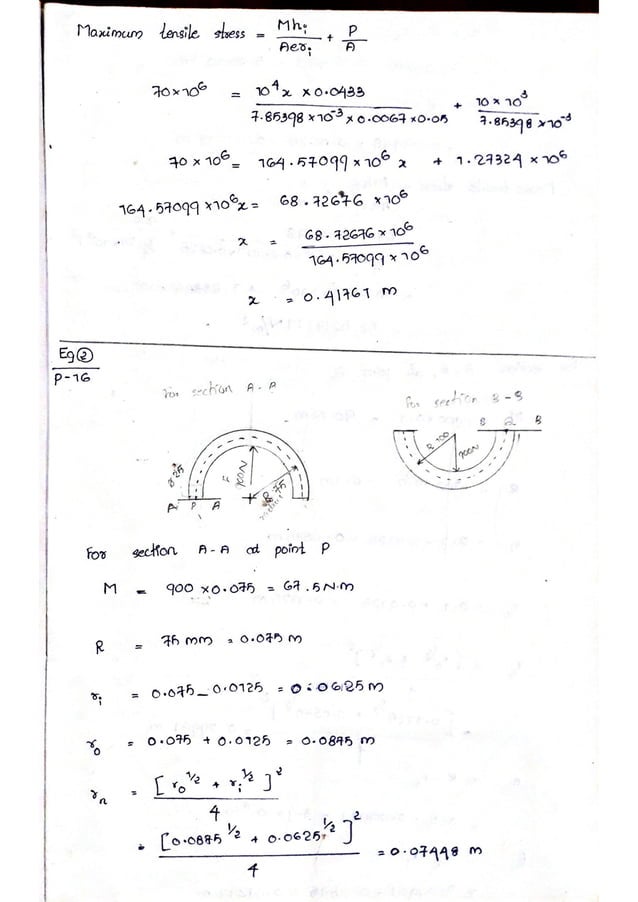 Maximum tensile stress = Mhi / Aeri + P / A
70×10⁶ = 10⁴x × 0.0433 / 7.85398 × 10⁻³ × 0.0067 × 0.05 + 10 × 10³ / 7.85398 × 10⁻³
70 × 10⁶ = 164.57099 × 10⁶ x + 1.27324 × 10⁶
164.57099 × 10⁶ x = 68.72676 × 10⁶
x = 68.72676 × 10⁶ / 164.57099 × 10⁶
x = 0.41761 m
Eg ②
P-16
For section A-A
For section B-B
A P A
For section A-A at point P
M = 900 × 0.075 = 67.5 N·m
R = 75 mm = 0.075 m
ri = 0.075 - 0.0125 = 0.0625 m
r₀ = 0.075 + 0.0125 = 0.0875 m
rn = [r₀^1/2 + ri^1/2]² / 4
= [0.0875^1/2 + 0.0625^1/2]² / 4 = 0.07448 m